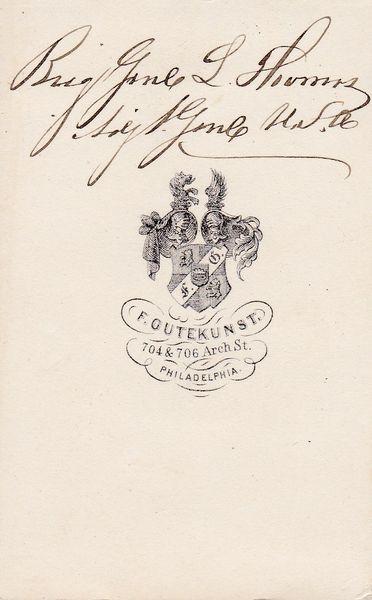 Brig Genl L. Thomas
Adjt. Genl U.S.A
F. G.
F. GUTEKUNST.
704 & 706 Arch St.
PHILADELPHIA.